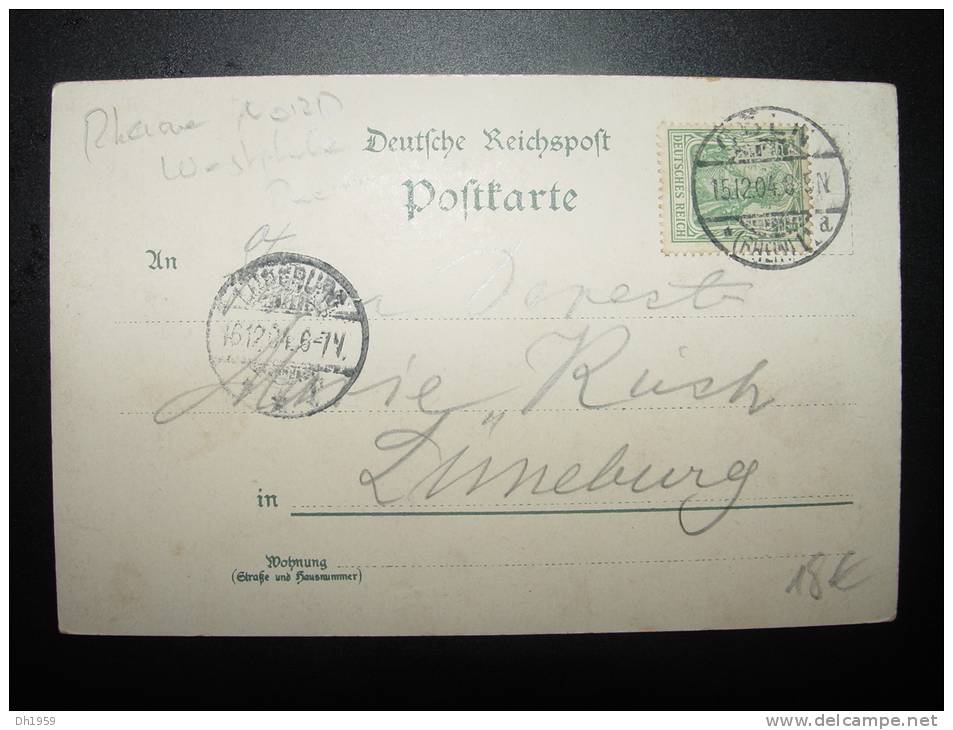 Deutsche Reichspost
Postkarte
DEUTSCHES REICH
15.12.04.6
N
a
(RHEIN)
An
LÜNEBURG
16.12.04.6-7V.
Marie Rüsch
in Lüneburg
Wohnung
(Straße und Hausnummer)
18€
Dh1959
www.delcampe.net